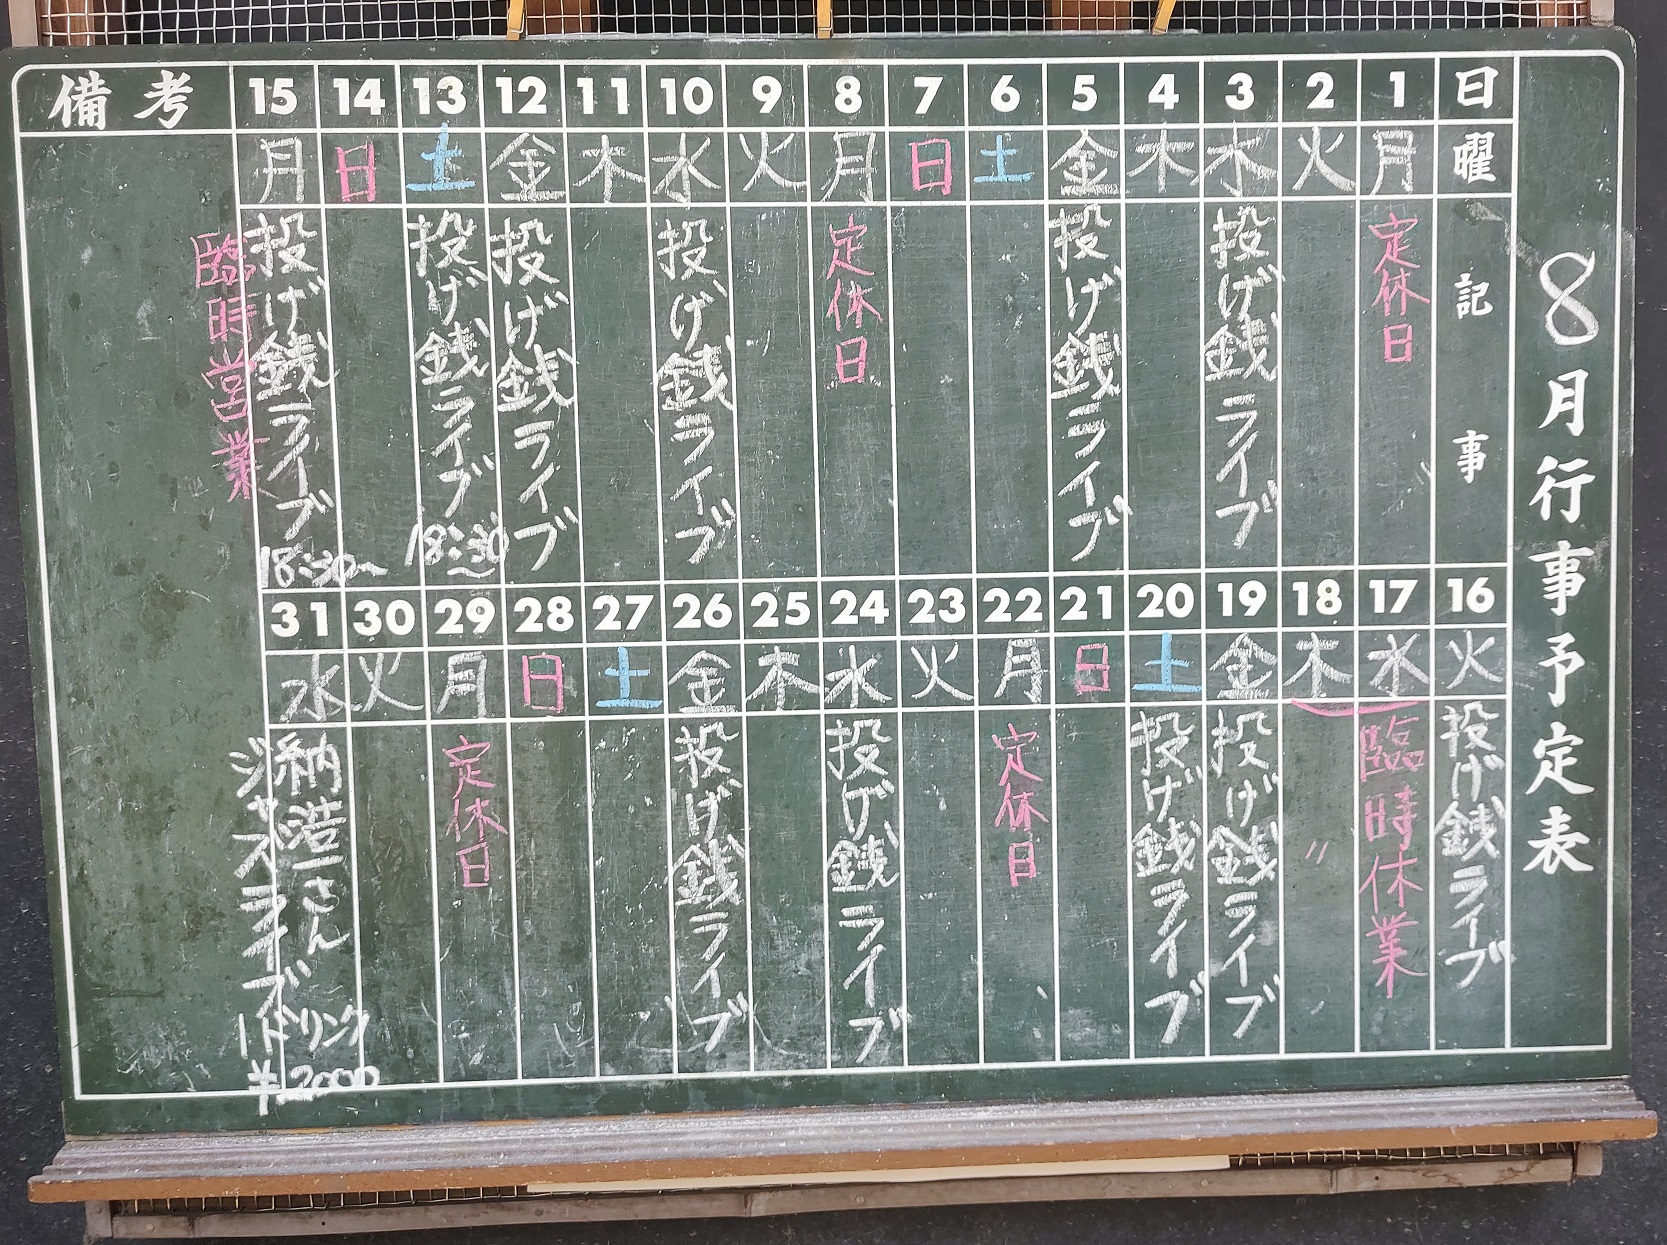 8月行事予定表
日 曜 記事
1 月 定休日
2 火
3 水 投げ銭ライブ
4 木
5 金 投げ銭ライブ
6 土
7 日
8 月 定休日
9 火
10 水 投げ銭ライブ
11 木
12 金 投げ銭ライブ
13 土 投げ銭ライブ 18:30〜
14 日
15 月 投げ銭ライブ 18:30〜
臨時営業
備考
16 火 投げ銭ライブ
17 水 臨時休業
18 木 〃
19 金 投げ銭ライブ
20 土 投げ銭ライブ
21 日
22 月 定休日
23 火
24 水 投げ銭ライブ
25 木
26 金 投げ銭ライブ
27 土
28 日
29 月 定休日
30 火
31 水 納浩一さん
ジャズライブ
1ドリンク
¥2000